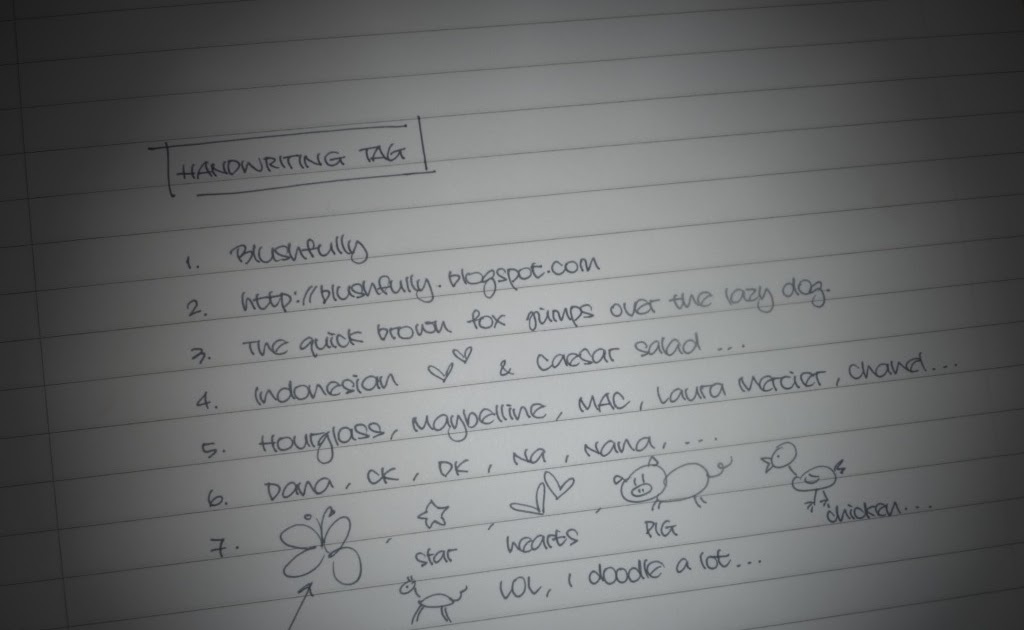 HANDWRITING TAG
1. Blushfully
2. http://blushfully.blogspot.com
3. The quick brown fox jumps over the lazy dog.
4. Indonesian & caesar salad ...
5. Hourglass, Maybelline, MAC, Laura Mercier, Chanel...
6. Dana, CK, DK, Na, Nana, ...
7. , star , hearts , PIG chicken...
LOL, I doodle a lot...